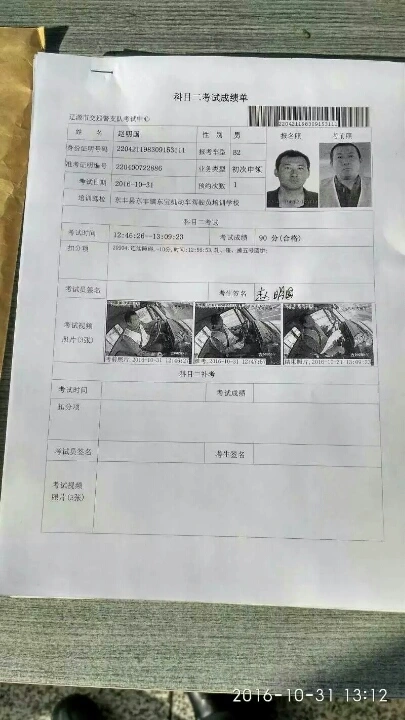 科目二考试成绩单
辽源市交巡警支队考试中心
220421198309153111
姓 名 赵明国 性 别 男 报名照 考前照
身份证明号码 220421198309153111 报考车型 B2
准考证明编号 220400722686 业务类型 初次申领
考试日期 2016-10-31 预约次数 1
培训驾校 东丰县东丰镇东宝机动车驾驶员培训学校
科目二考试
考试时间 12:46:26--13:09:23 考试成绩 90 分(合格)
扣分项
考试员签名 考生签名 赵明国
考试视频
照片(3张)
科目二补考
考试时间 考试成绩
扣分项
考试员签名 考生签名
考试视频
照片(3张)
2016-10-31 13:12